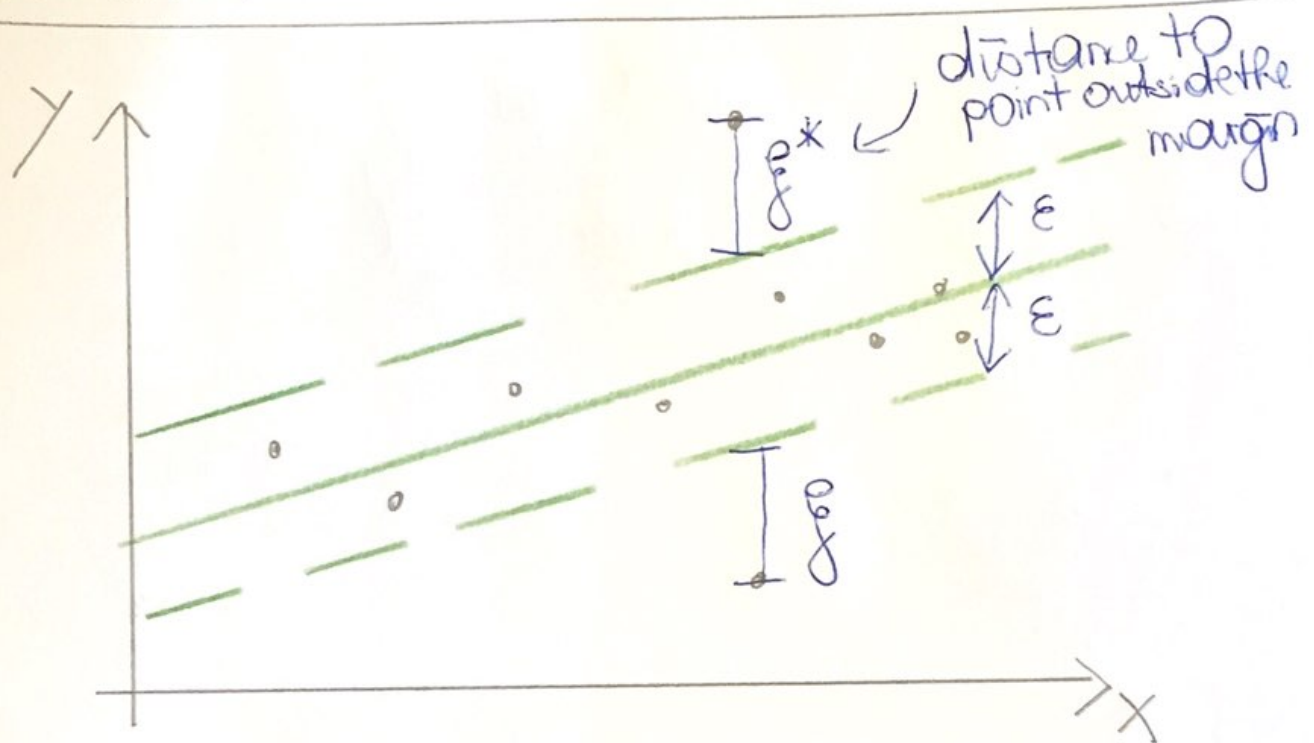 distance to
point outside the
margin
y
ξ*
ε
ε
ξ
x